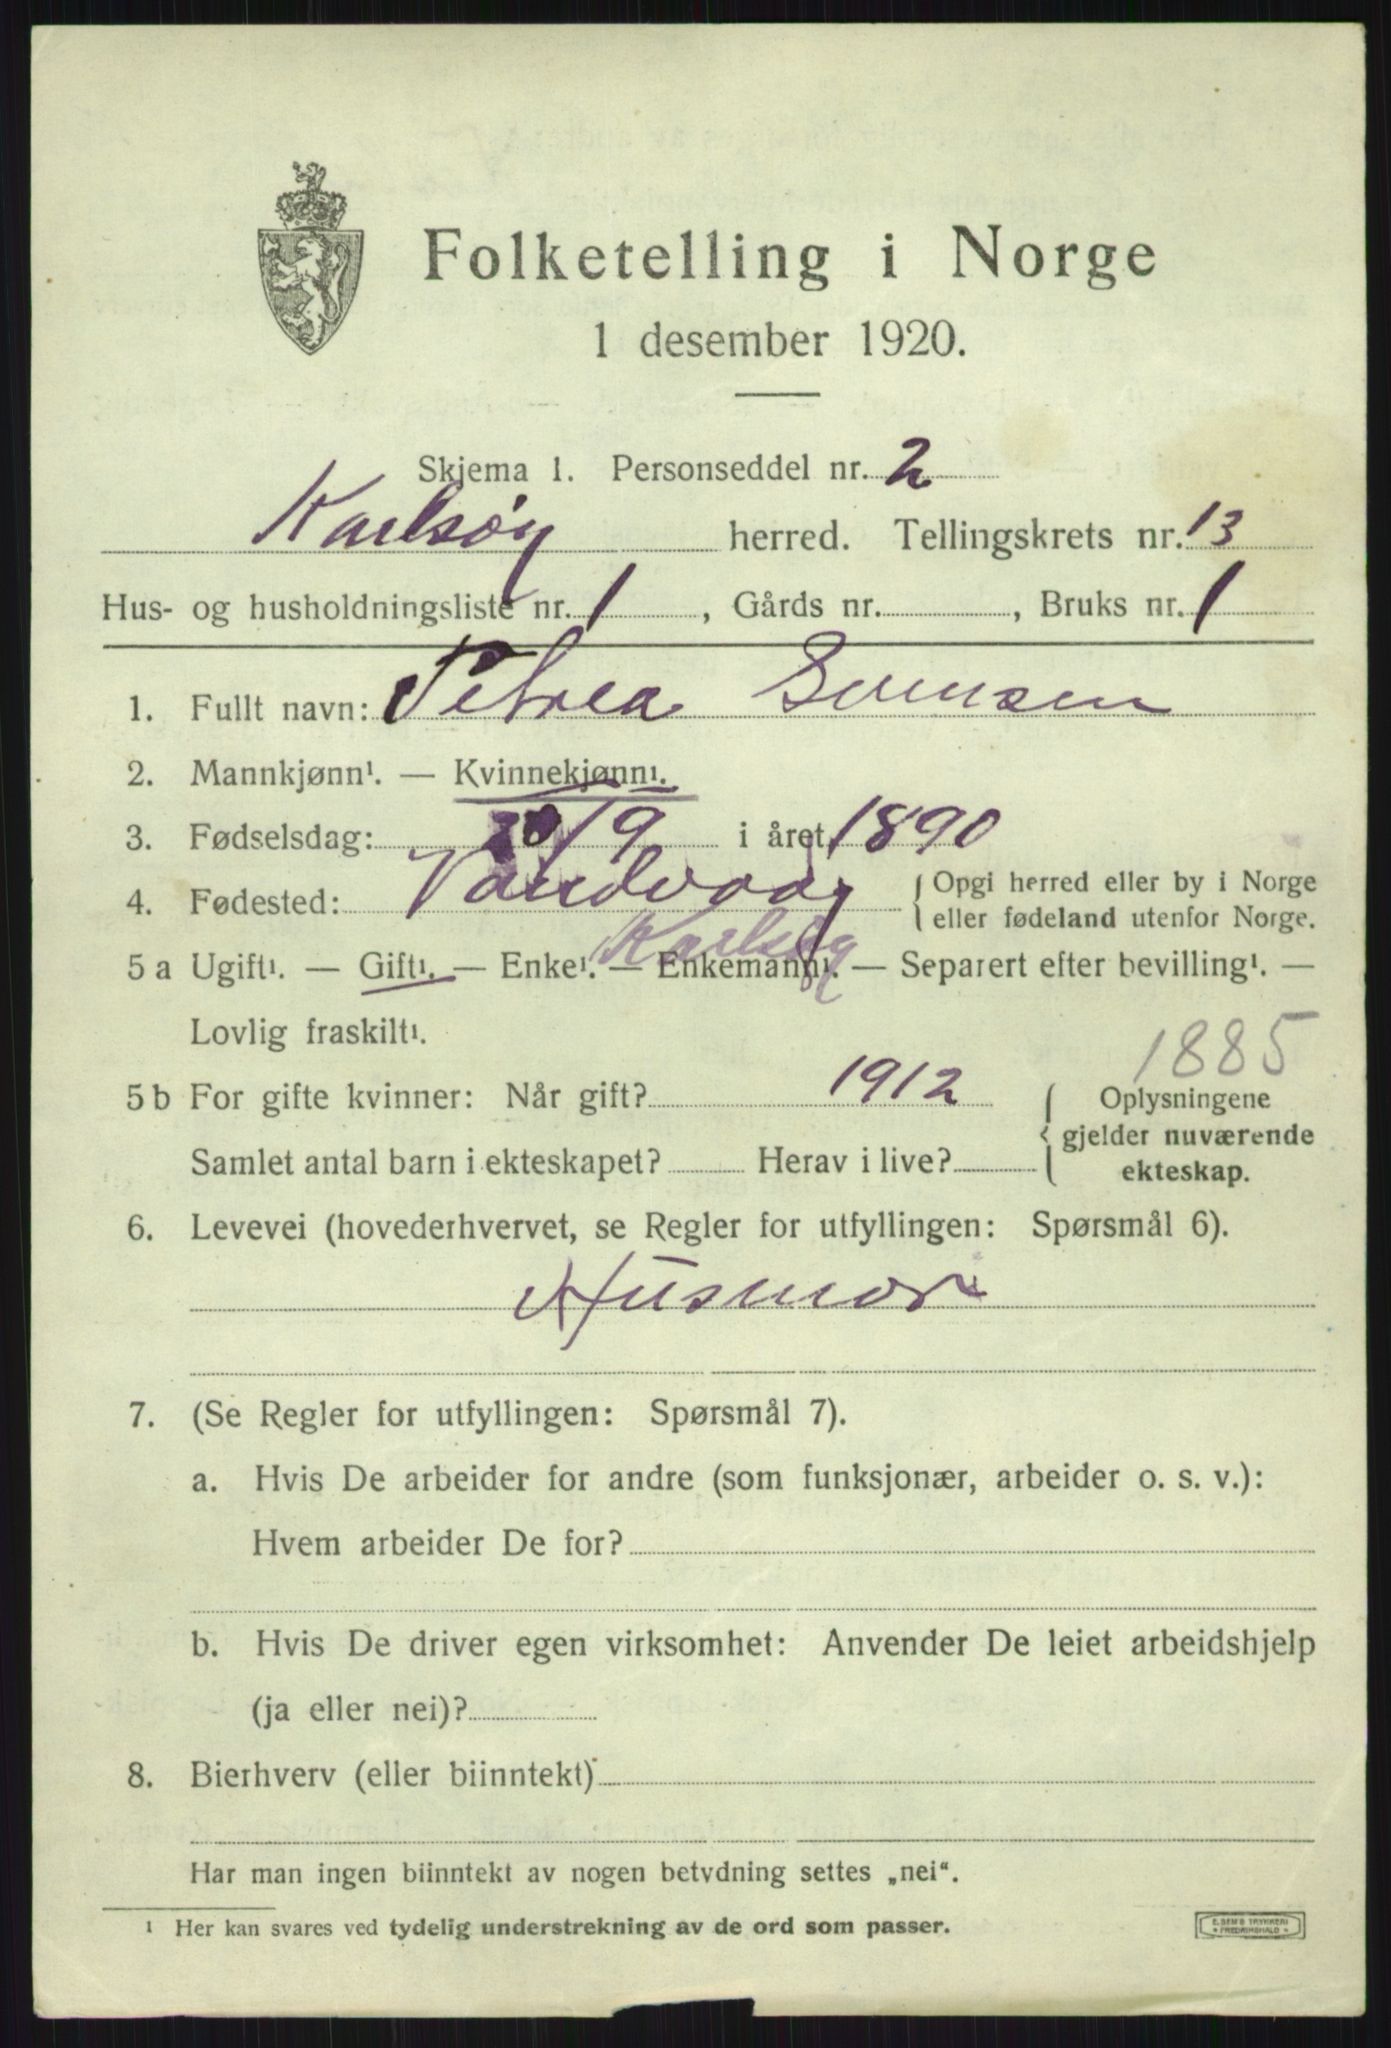 Folketelling i Norge
1 desember 1920.
Skjema 1. Personseddel nr. 2
Karlsøy herred. Tellingskrets nr. 13
Hus- og husholdningsliste nr. 1, Gårds nr. , Bruks nr. 1
1. Fullt navn: Petrea Sørensen
2. Mannkjønn¹. — Kvinnekjønn¹.
3. Fødselsdag: /9 i året 1890
4. Fødested: Vandvaag { Opgi herred eller by i Norge
eller fødeland utenfor Norge.
Karlsøy
5 a Ugift¹. — Gift¹. — Enke¹. — Enkemann¹. — Separert efter bevilling¹. —
Lovlig fraskilt¹.
1885
5 b For gifte kvinner: Når gift? 1912 { Oplysningene
gjelder nuværende
Samlet antal barn i ekteskapet? Herav i live? ekteskap.
6. Levevei (hovederhvervet, se Regler for utfyllingen: Spørsmål 6).
Husmor
7. (Se Regler for utfyllingen: Spørsmål 7).
a. Hvis De arbeider for andre (som funksjonær, arbeider o. s. v.):
Hvem arbeider De for?
b. Hvis De driver egen virksomhet: Anvender De leiet arbeidshjelp
(ja eller nei)?
8. Bierhverv (eller biinntekt)
Har man ingen biinntekt av nogen betydning settes „nei“.
¹ Her kan svares ved tydelig understrekning av de ord som passer.
E. SEM'S TRYKKERI
FREDRIKSHALD